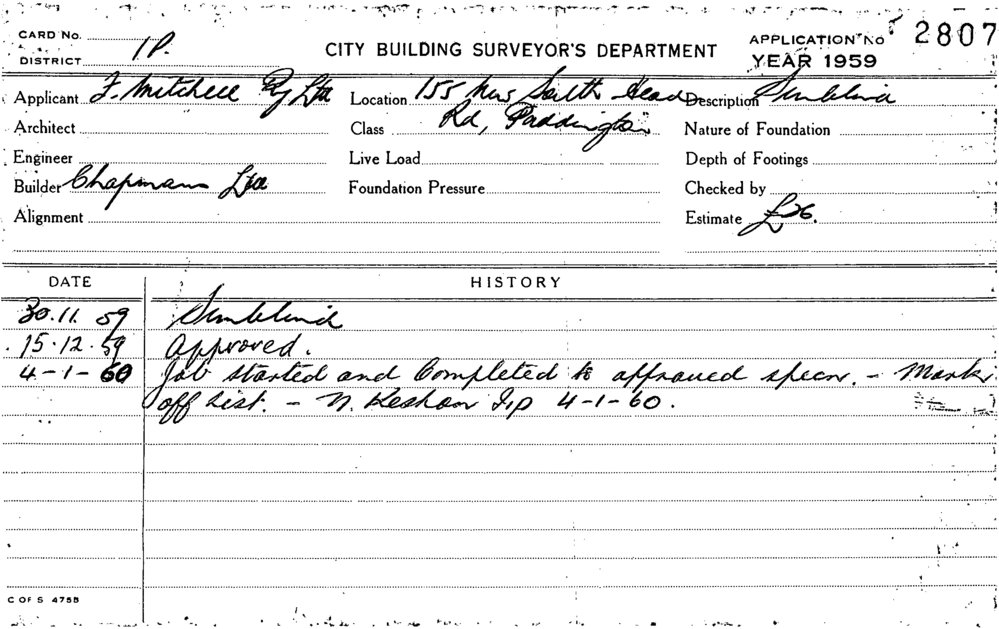 CARD No.
DISTRICT 1P.
CITY BUILDING SURVEYOR'S DEPARTMENT
APPLICATION No 2807
YEAR 1959
Applicant F. Mitchell Pty Ltd
Location 155 New South Head
Description Sunblind
Architect
Class Rd, Paddington
Nature of Foundation
Engineer
Live Load
Depth of Footings
Builder Chapmans Ltd
Foundation Pressure
Checked by
Alignment
Estimate £26.
DATE HISTORY
30.11.59 Sunblind
15.12.59 Approved.
4-1-60 Job started and Completed to approved specn. - Mark
off List. - N. 4-1-60.
C OF S 4755